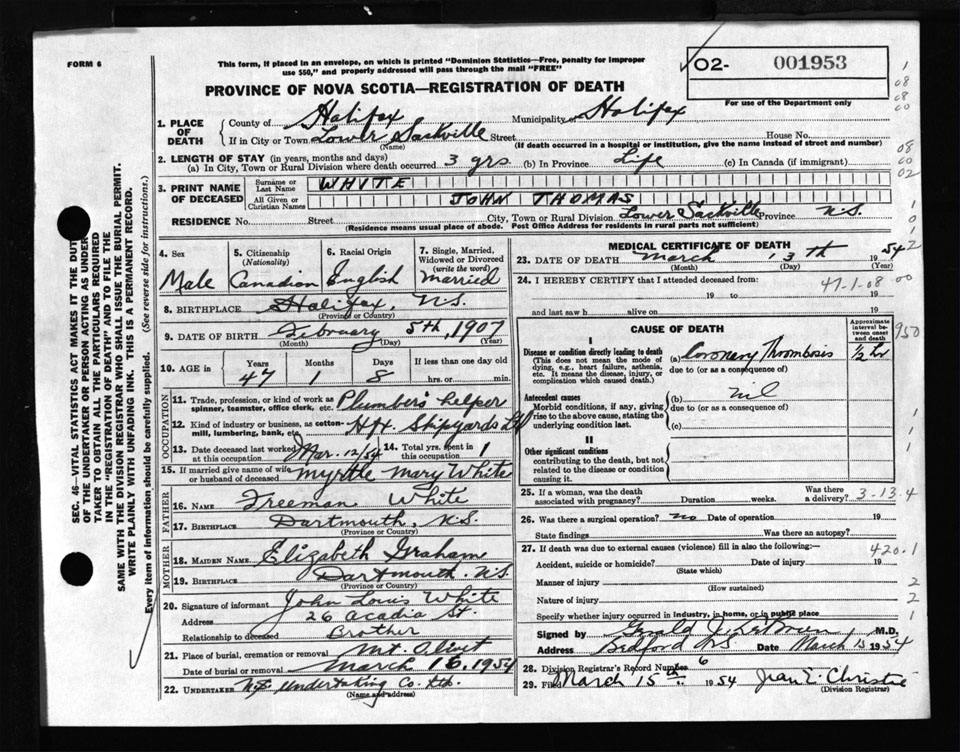 FORM 6
This form, if placed in an envelope, on which is printed "Dominion Statistics—Free, penalty for improper
use $50," and properly addressed will pass through the mail "FREE"
PROVINCE OF NOVA SCOTIA—REGISTRATION OF DEATH
O2- 001953
For use of the Department only
1. PLACE OF DEATH
County of Halifax Municipality of Halifax
If in City or Town Lower Sackville Street House No.
(Name) (If death occurred in a hospital or institution, give the name instead of street and number)
2. LENGTH OF STAY (in years, months and days)
(a) In City, Town or Rural Division where death occurred 3 yrs (b) In Province Life (c) In Canada (if immigrant)
3. PRINT NAME OF DECEASED
Surname or Last Name WHITE
All Given or Christian Names JOHN THOMAS
RESIDENCE No. Street City, Town or Rural Division Lower Sackville Province N.S.
(Residence means usual place of abode. Post Office Address for residents in rural parts not sufficient)
4. Sex Male
5. Citizenship (Nationality) Canadian
6. Racial Origin English
7. Single, Married, Widowed or Divorced (write the word) married
8. BIRTHPLACE Halifax, N.S.
(Province or Country)
9. DATE OF BIRTH February 5th, 1907
(Month) (Day) (Year)
10. AGE in Years Months Days If less than one day old
47 1 8 hrs. or min.
OCCUPATION
11. Trade, profession, or kind of work as spinner, teamster, office clerk, etc. Plumber's helper
12. Kind of industry or business, as cotton-mill, lumbering, bank, etc. Hfx. Shipyards Ltd
13. Date deceased last worked at this occupation Mar. 12/54
14. Total yrs. spent in this occupation 1
15. If married give name of wife or husband of deceased Myrtle Mary White
FATHER
16. NAME Freeman White
17. BIRTHPLACE Dartmouth, N.S.
(Province or Country)
MOTHER
18. MAIDEN NAME Elizabeth Graham
19. BIRTHPLACE Dartmouth, N.S.
(Province or Country)
20. Signature of informant John Louis White
Address 26 Acadia St.
Relationship to deceased Brother
21. Place of burial, cremation or removal Mt. Olivet
Date of burial or removal March 16, 1954
22. UNDERTAKER Nfx Undertaking Co. Ltd.
(Name and address)
MEDICAL CERTIFICATE OF DEATH
23. DATE OF DEATH March 13th 1954
(Month) (Day) (Year)
24. I HEREBY CERTIFY that I attended deceased from: 47-1-08
19 to 19
and last saw h alive on 19
CAUSE OF DEATH
Approximate interval between onset and death
I
Disease or condition directly leading to death (a) Coronary Thrombosis ½ hr
(This does not mean the mode of dying, e.g., heart failure, asthenia, etc. It means the disease, injury, or complication which caused death.)
due to (or as a consequence of)
Antecedent causes (b) nil
Morbid conditions, if any, giving rise to the above cause, stating the underlying condition last.
due to (or as a consequence of)
(c)
II
Other significant conditions
contributing to the death, but not related to the disease or condition causing it.
25. If a woman, was the death associated with pregnancy? Duration weeks. Was there a delivery? 3-13.4
26. Was there a surgical operation? no Date of operation 19
State findings Was there an autopsy?
27. If death was due to external causes (violence) fill in also the following:— 420.1
Accident, suicide or homicide? Date of injury 19
(State which)
Manner of injury
(How sustained)
Nature of injury
Specify whether injury occurred in industry, in home, or in public place
Signed by M.D.
Address Bedford N.S. Date March 15 1954
28. Division Registrar's Record Number 6
29. Filed March 15th 1954 Jean E. Christie
(Division Registrar)
SEC. 46—VITAL STATISTICS ACT MAKES IT THE DUTY
OF THE UNDERTAKER OR PERSON ACTING AS UNDER-
TAKER TO OBTAIN ALL THE PARTICULARS REQUIRED
IN THE "REGISTRATION OF DEATH" AND TO FILE THE
SAME WITH THE DIVISION REGISTRAR WHO SHALL ISSUE THE BURIAL PERMIT.
WRITE PLAINLY WITH UNFADING INK. THIS IS A PERMANENT RECORD.
Every item of information should be carefully supplied. (See reverse side for instructions.)